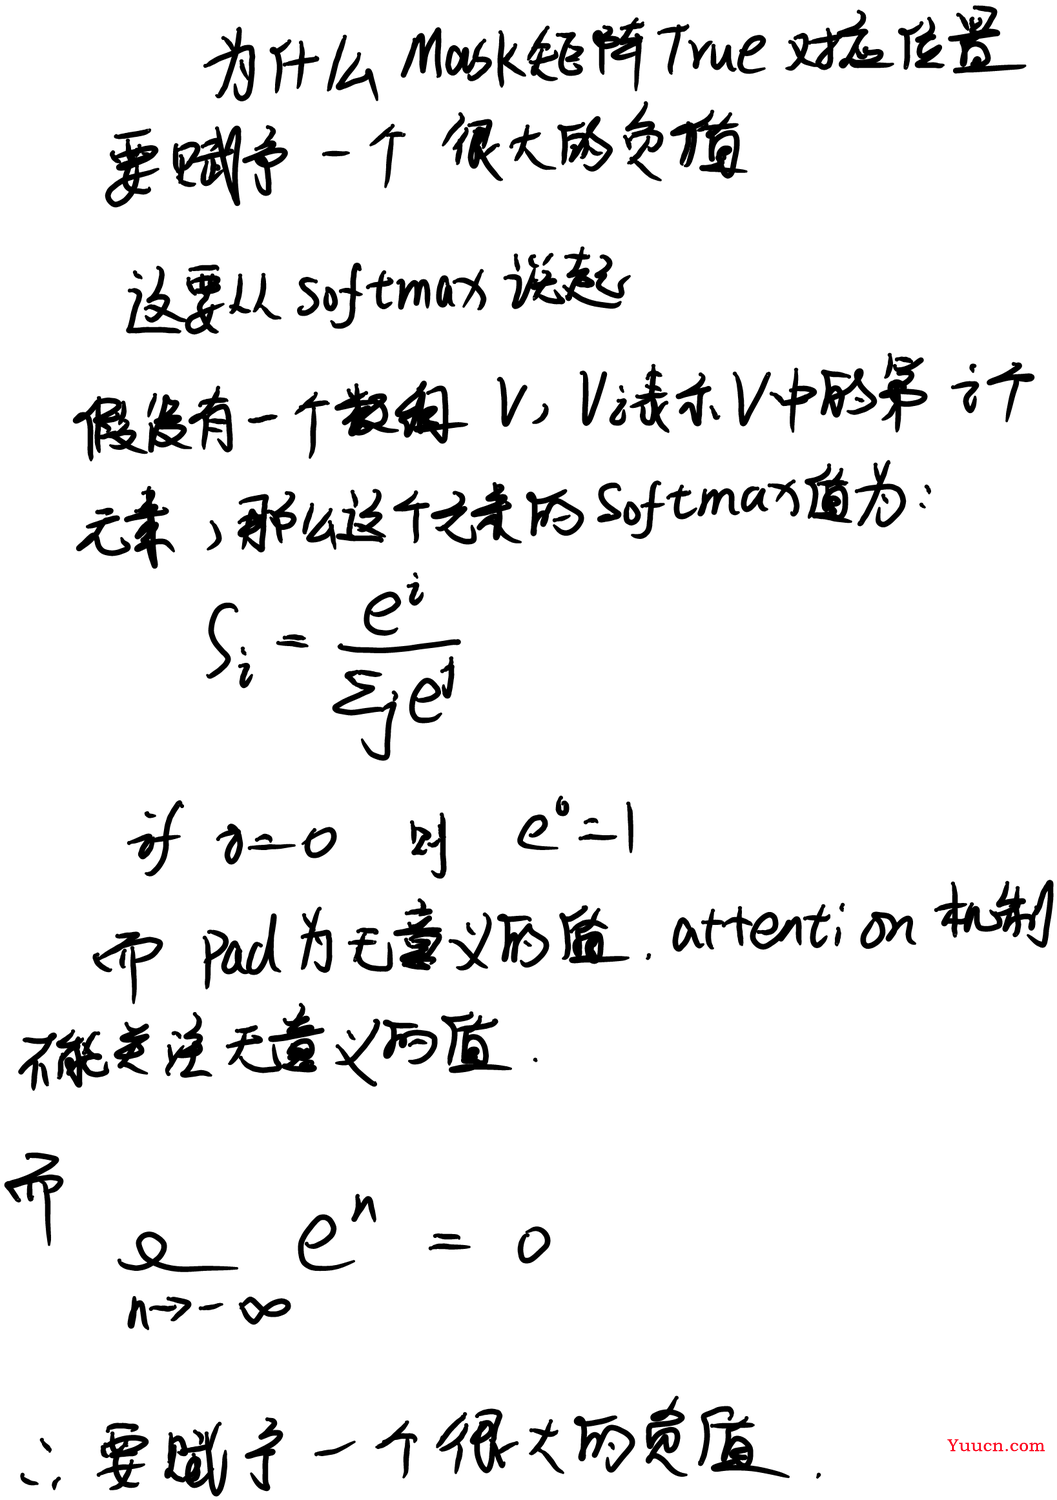 为什么 Mask矩阵True 对应位置
要赋予 一个 很大的负值
这要从 softmax 说起
假设有一个数组 V, Vi表示V中的第 i个
元素,那么这个元素的Softmax值为:
S_i = e^i / Σ_j e^j
if i=0 则 e^0=1
而 Pad为无意义的值. attention 机制
不能关注无意义的值.
而
n→-∞ e^n = 0
∴ 要赋予一个很大的负值.
Yuucn.com